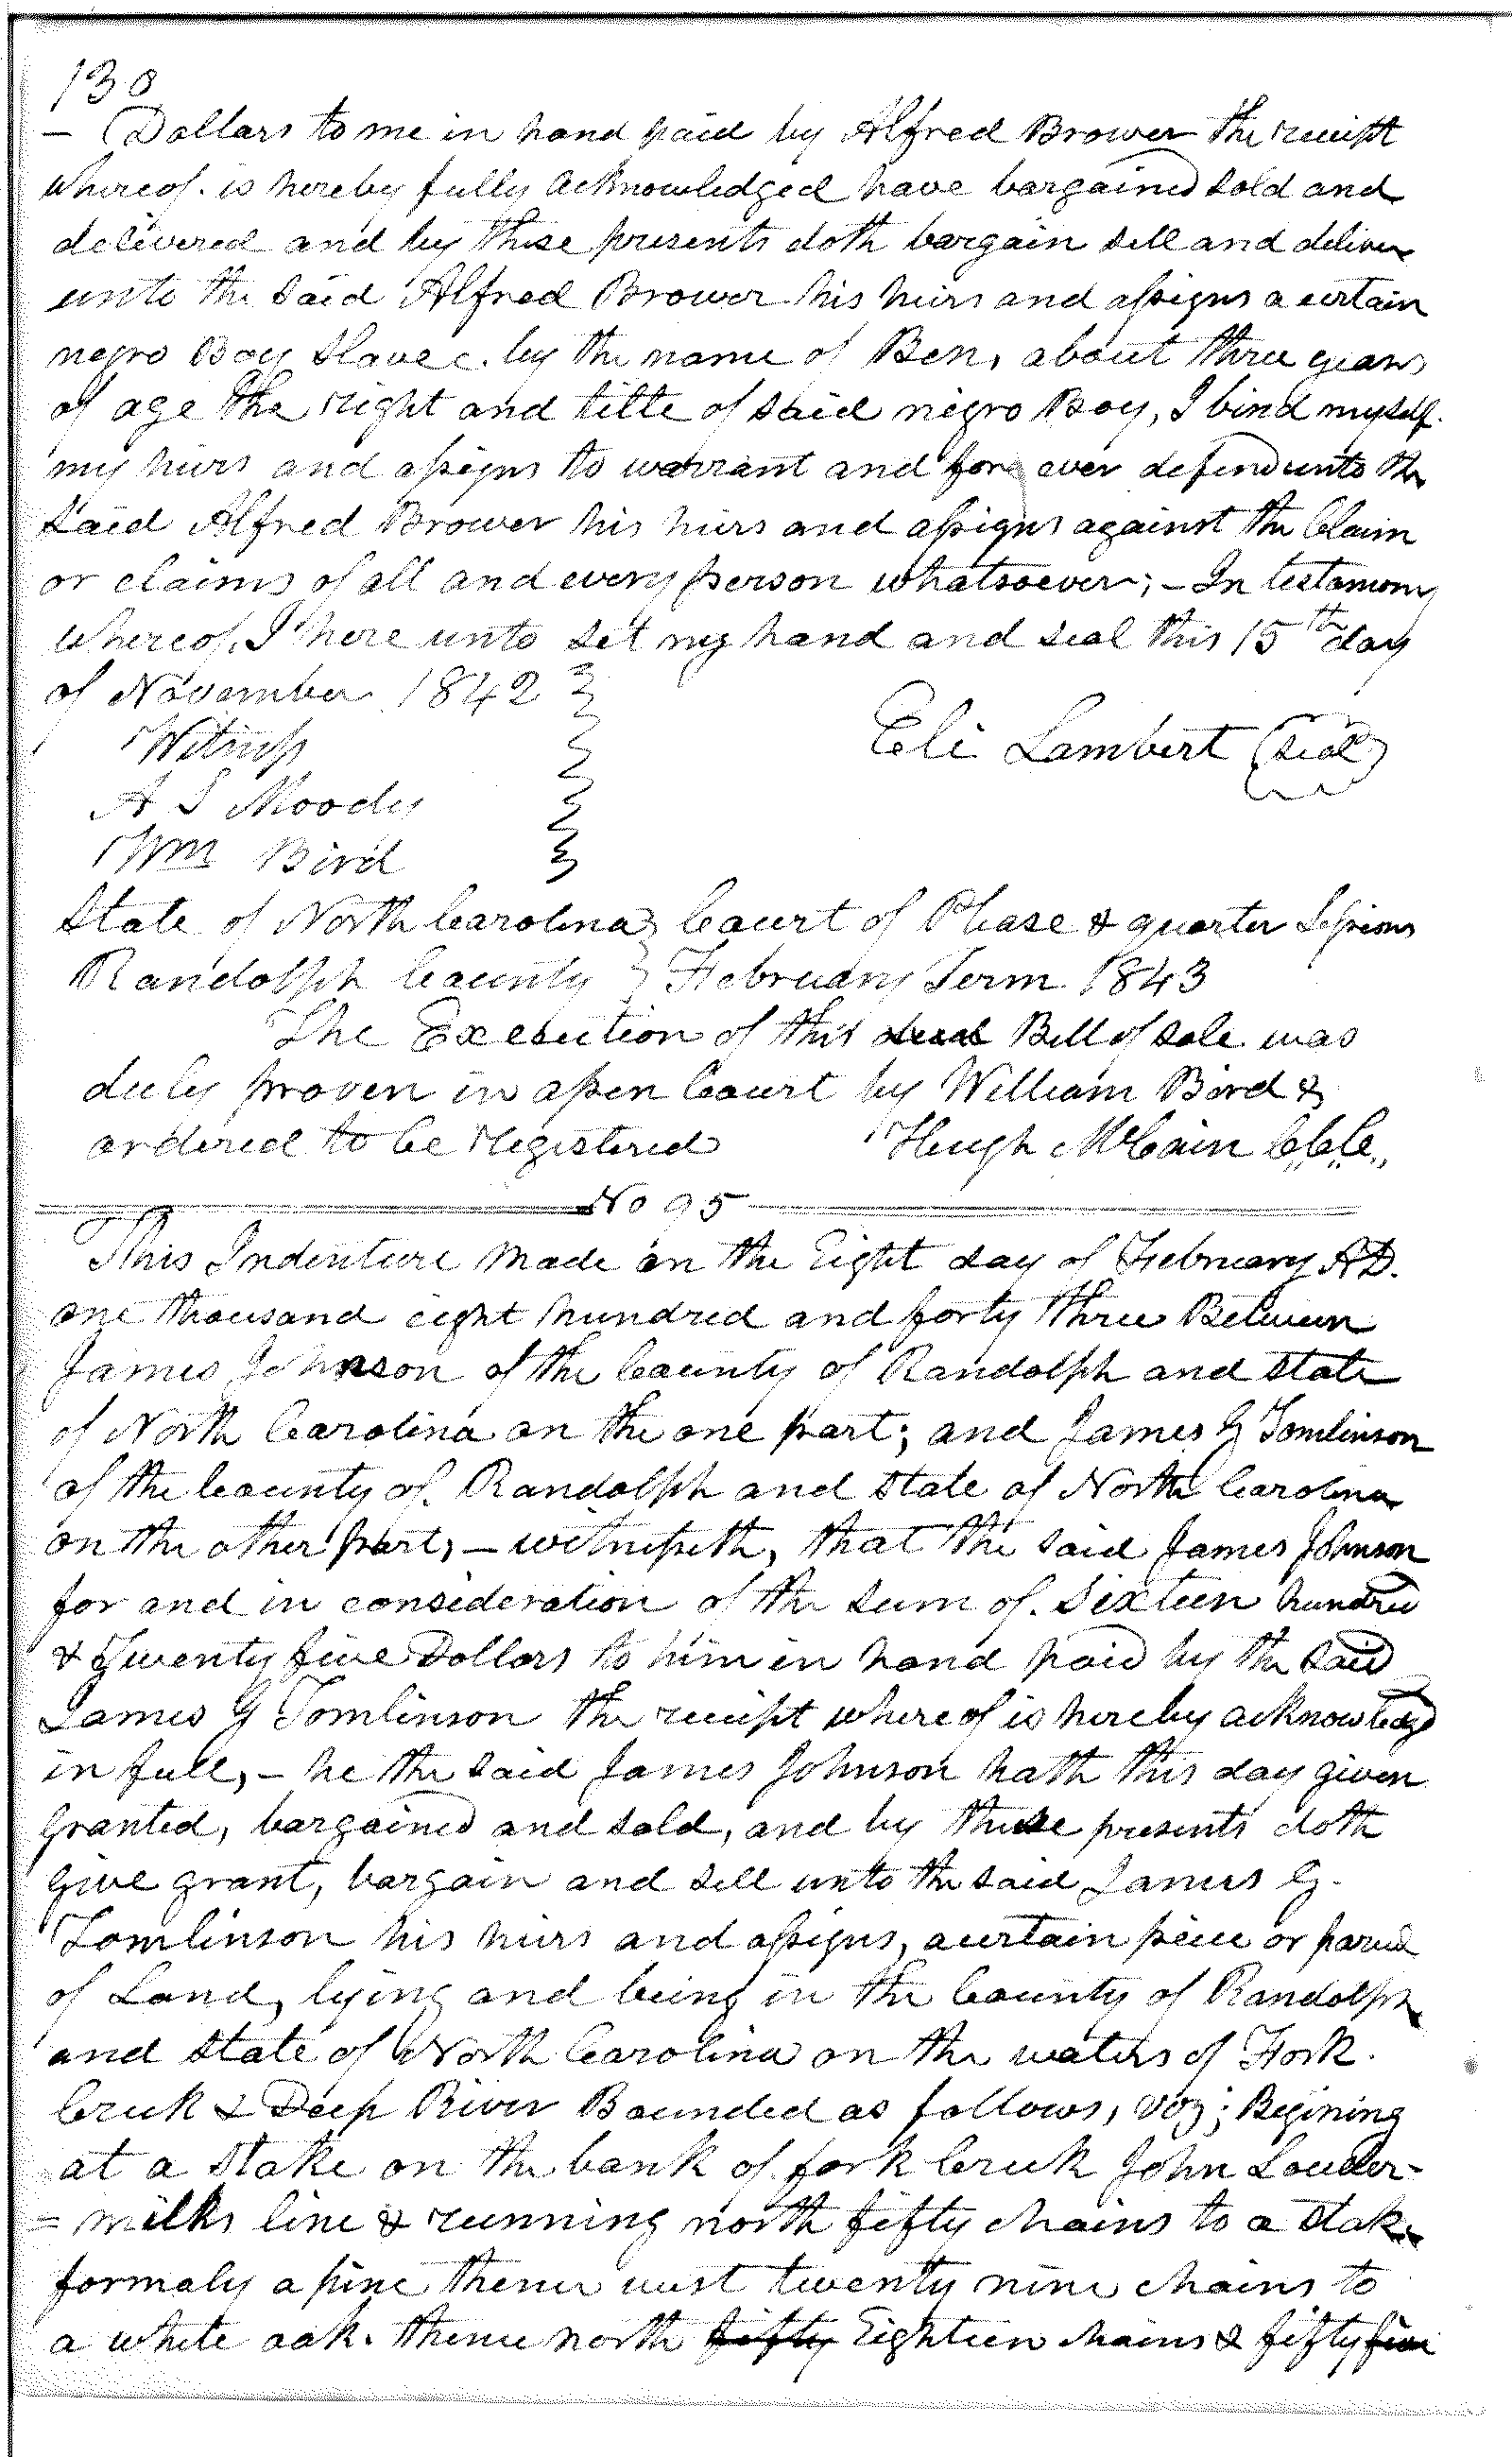 130
— Dollars to me in hand paid by Alfred Brower the receipt
whereof is hereby fully acknowledged have bargained sold and
delivered and by these presents doth bargain sell and deliver
unto the said Alfred Brower his heirs and assigns a certain
negro Boy Slave c. by the name of Ben, about three years
of age the right and title of said negro Boy, I bind myself
my heirs and assigns to warrant and for ever defend unto the
said Alfred Brower his heirs and assigns against the Claim
or claims of all and every person whatsoever; – In testamony
whereof, I here unto set my hand and seal this 15th day
of November 1842
Witness
Eli Lambert (seal)
A S Moody
Wm Bird
State of North Carolina Court of Please & quarter Sessions
Randolph County February Term 1843
The Execution of this deed Bill of sale was
duly proven in open Court by William Bird &
ordered to be registered Hugh McCain C.C.C.
No 95
This Indenture made on the Eight day of February A.D.
one thousand eight hundred and forty three Between
James Johnson of the County of Randolph and State
of North Carolina on the one part; and James G Tomlinson
of the County of Randolph and State of North Carolina
on the other part, – witnesseth, that the said James Johnson
for and in consideration of the sum of Sixteen hundred
& Twenty five Dollars to him in hand paid by the said
James G Tomlinson the receipt whereof is hereby acknowledged
in full, – he the said James Johnson hath this day given
granted, bargained and sold, and by these presents doth
give grant, bargain and sell unto the said James G.
Tomlinson his heirs and assigns, a certain piece or parcel
of Land, lying and being in the County of Randolph
and State of North Carolina on the waters of Fork
Creek & Deep River Bounded as follows, Viz; Begining
at a stake on the bank of fork Creek John Louder-
= milks line & running north fifty chains to a stake
formaly a pine thence west twenty nine chains to
a white oak. thence north fifty Eighteen chains & fifty five